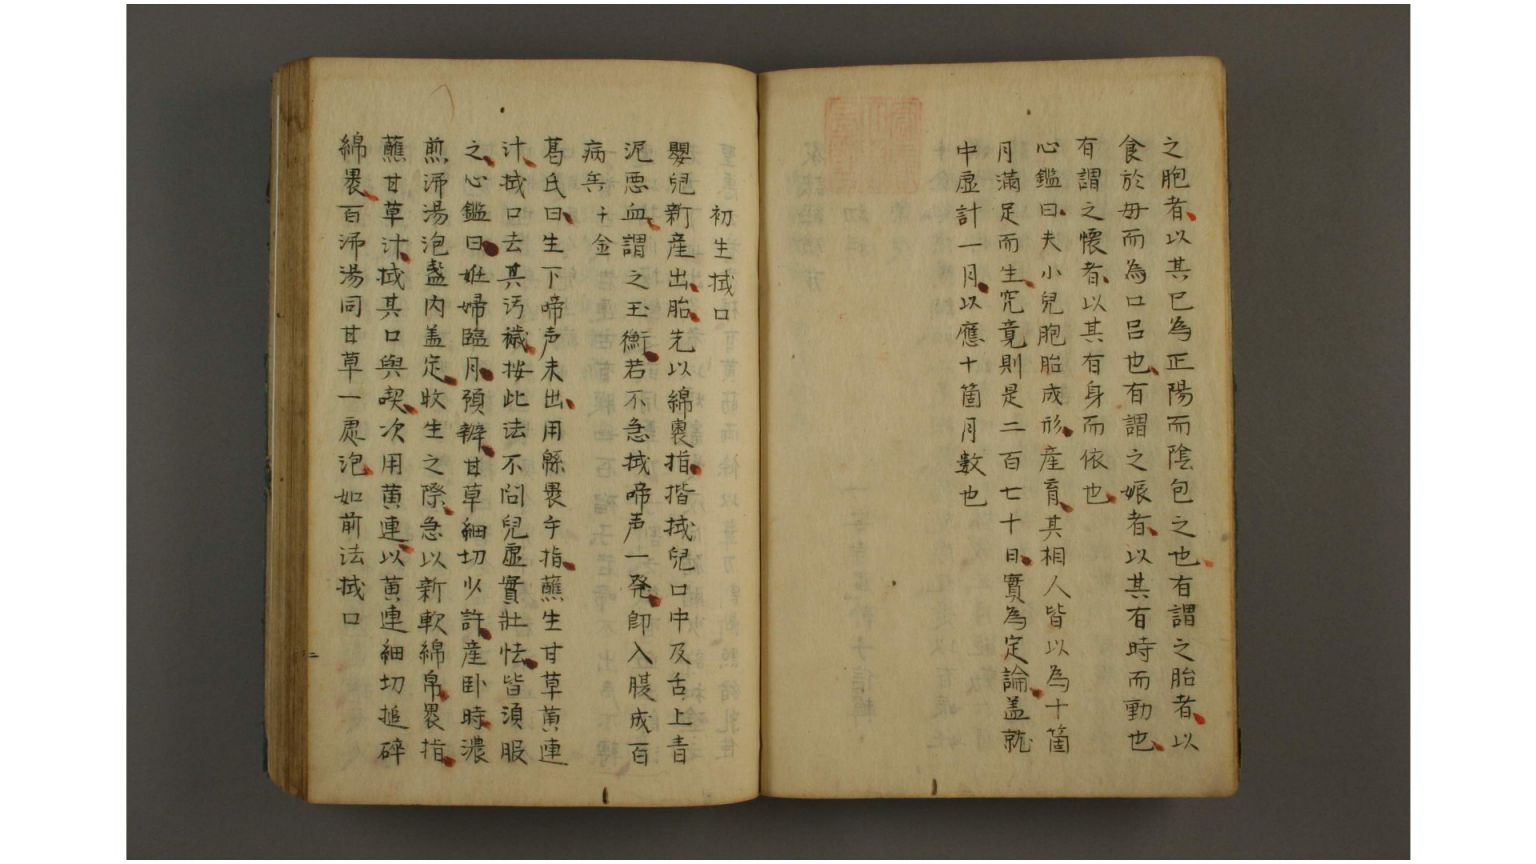 之胞者以其已為正陽而陰包之也有謂之胎者以
食於母而為口呂也有謂之娠者以其有時而動也
有謂之懷者以其有身而依也
心鑑曰夫小兒胞胎成形産育其相人皆以為十箇
月滿足而生究竟則是二百七十日實為定論盖就
中虚計一月以應十箇月数也
初生拭口
嬰兒新産出胎先以綿裹指揩拭兒口中及舌上青
泥悪血謂之玉衡若不急拭啼声一発即入腹成百
病矣千金
葛氏曰生下啼声未出用緜裹手指蘸生甘草黄連
汁拭口去其汚穢按此法不問兒虚實壮怯皆須服
之心鑑曰姙婦臨月預辦甘草細切少許産卧時濃
煎沸湯泡盞內盖定收生之際急以新軟綿帛裹指
蘸甘草汁拭其口與喫次用黄連以黄連細切搥碎
綿裹百沸湯同甘草一處泡如前法拭口